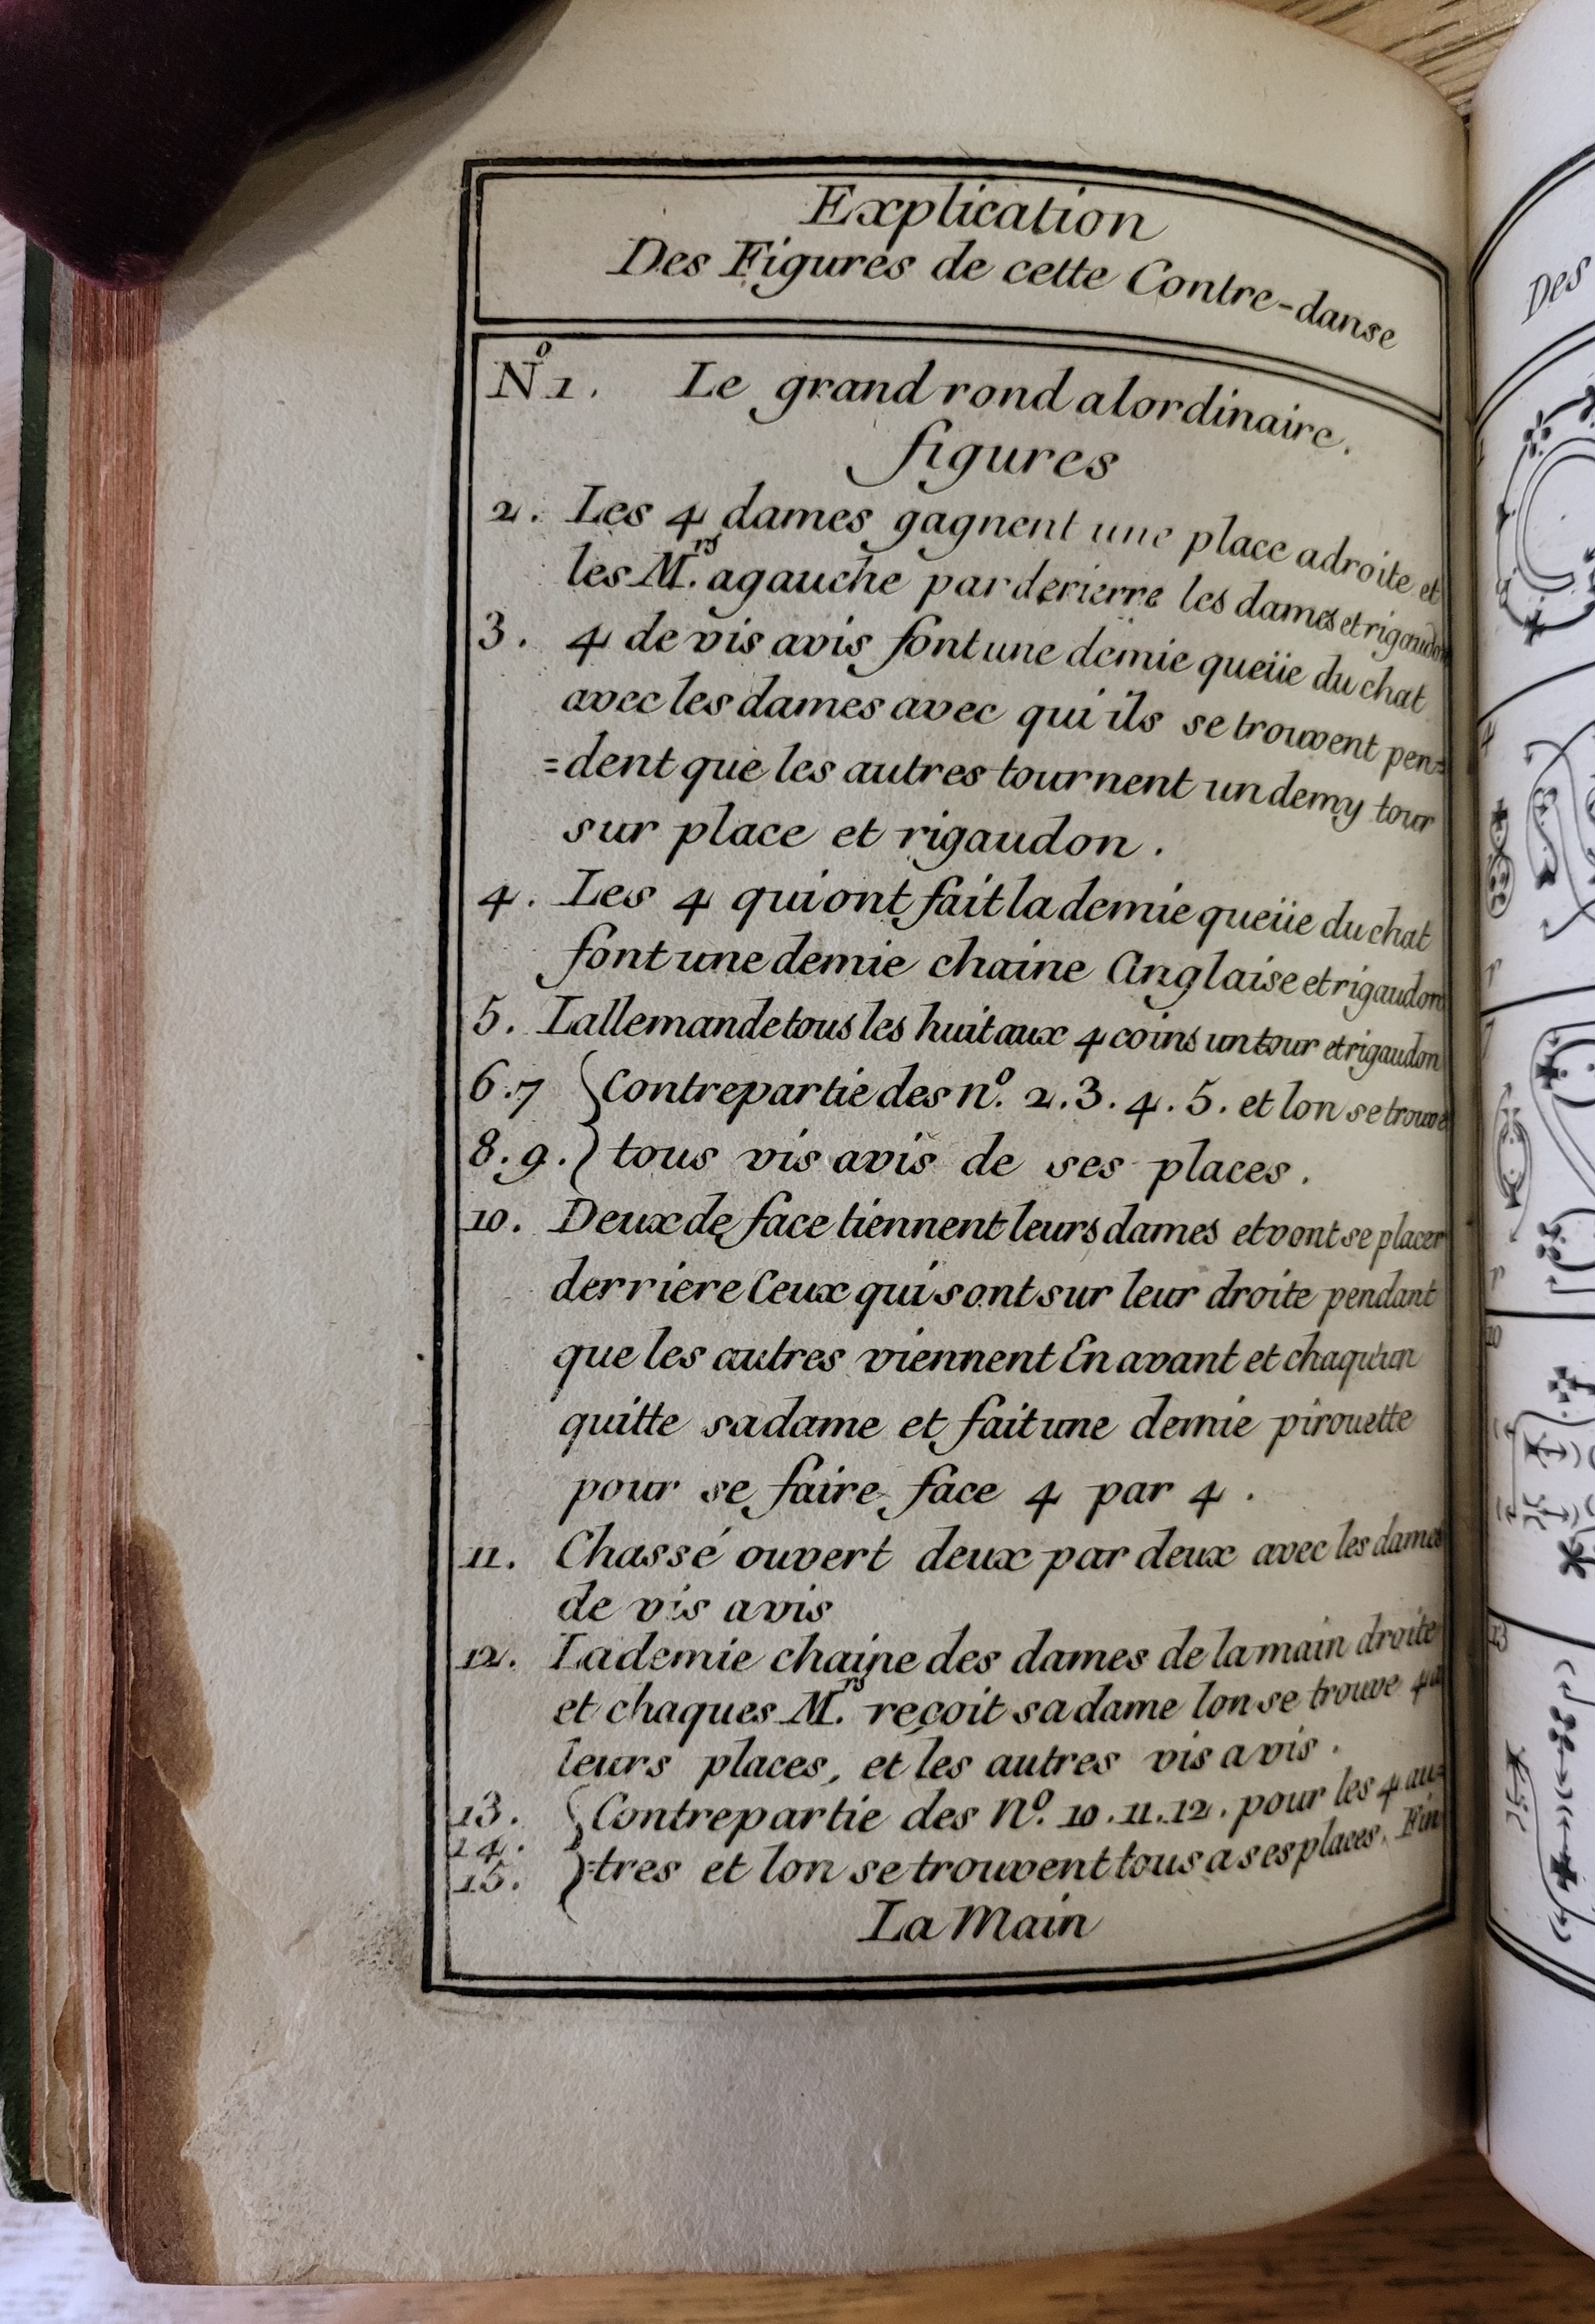 Explication
Des Figures de cette Contre-danse
Nº 1. Le grand rond alordinaire.
figures
2. Les 4 dames gagnent une place adroite et
les M.rs agauche par derierre les dames et rigaudon
3. 4 de vis avis font une demie queüe du chat
avec les dames avec qui ils se trouvent pen=
=dent que les autres tournent un demy tour
sur place et rigaudon.
4. Les 4 qui ont fait la demie queüe du chat
font une demie chaine Anglaise et rigaudon
5. Lallemande tous les huit aux 4 coins un tour et rigaudon
6.7 { Contrepartie des nº. 2.3.4.5. et lon se trouve
8.9. } tous vis avis de ses places.
10. Deux de face tiennent leurs dames et vont se placer
derriere Ceux qui sont sur leur droite pendant
que les autres viennent En avant et chaqu'un
quitte sa dame et fait une demie pirouette
pour se faire face 4 par 4.
11. Chassé ouvert deux par deux avec les dames
de vis avis
12. La demie chaine des dames de la main droite
et chaques M.rs reçoit sa dame lon se trouve 4 a
leurs places, et les autres vis avis.
13. { Contrepartie des Nº. 10.11.12. pour les 4 au=
14.
15. } =tres et lon se trouvent tous a ses places. Fin
La Main
Des